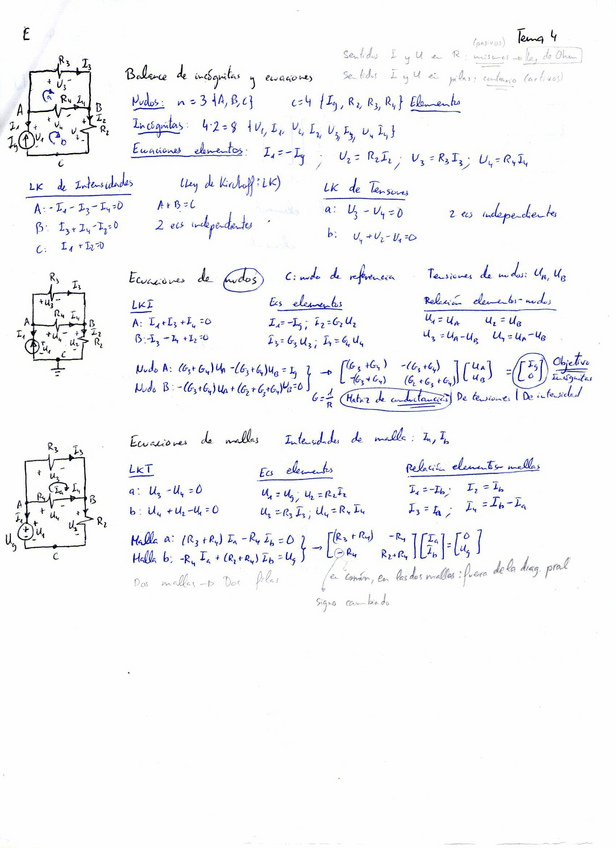 E
Tema 4
(pasivos)
Sentidos I y U en R: mismos no ley de Ohm
Sentidos I y U en pilas: contrario (activos)
Balance de incógnitas y ecuaciones
Nudos: n=3 {A,B,C} e=4 {Ig, R2, R3, R4} Elementos
Incógnitas: 4·2=8 {U1, I1, U2, I2, U3, I3, U4, I4}
Ecuaciones elementos: I1=-Ig ; U2=R2I2 ; U3=R3I3 ; U4=R4I4
LK de Intensidades (Ley de Kirchoff: LK) LK de Tensiones
A: -I1-I3-I4=0 A+B=C a: U3-U4=0 2 ecs independientes
B: I3+I4-I2=0 2 ecs independientes b: U4+U2-U1=0
C: I1+I2=0
Ecuaciones de nudos C: nudo de referencia Tensiones de nudos: UA, UB
LKI Ecs elementos Relación elementos-nudos
A: I1+I3+I4=0 I1=-Ig ; I2=G2U2 U1=UA U2=UB
B: -I3-I4+I2=0 I3=G3U3 ; I4=G4U4 U3=UA-UB U4=UA-UB
Nudo A: (G3+G4)UA-(G3+G4)UB=Ig } → [(G3+G4) -(G3+G4)] [UA] = [Ig] Objetivo
Nudo B: -(G3+G4)UA+(G2+G3+G4)UB=0 } [-(G3+G4) (G2+G3+G4)] [UB] [0] Incógnitas
G=1/R Matriz de conductancias | De tensiones | De intensidad
Ecuaciones de mallas Intensidades de malla: Ia, Ib
LKT Ecs elementos Relación elementos-mallas
a: U3-U4=0 U1=Ug ; U2=R2I2 I1=-Ib ; I2=Ib
b: U4+U2-U1=0 U3=R3I3 ; U4=R4I4 I3=Ia ; I4=Ib-Ia
Malla a: (R3+R4)Ia-R4Ib=0 } → [(R3+R4) -R4] [Ia] = [0]
Malla b: -R4Ia+(R2+R4)Ib=Ug } [-R4 R2+R4] [Ib] [Ug]
Dos mallas → Dos filas
en común, en las dos mallas: fuera de la diag. pral
signo cambiado